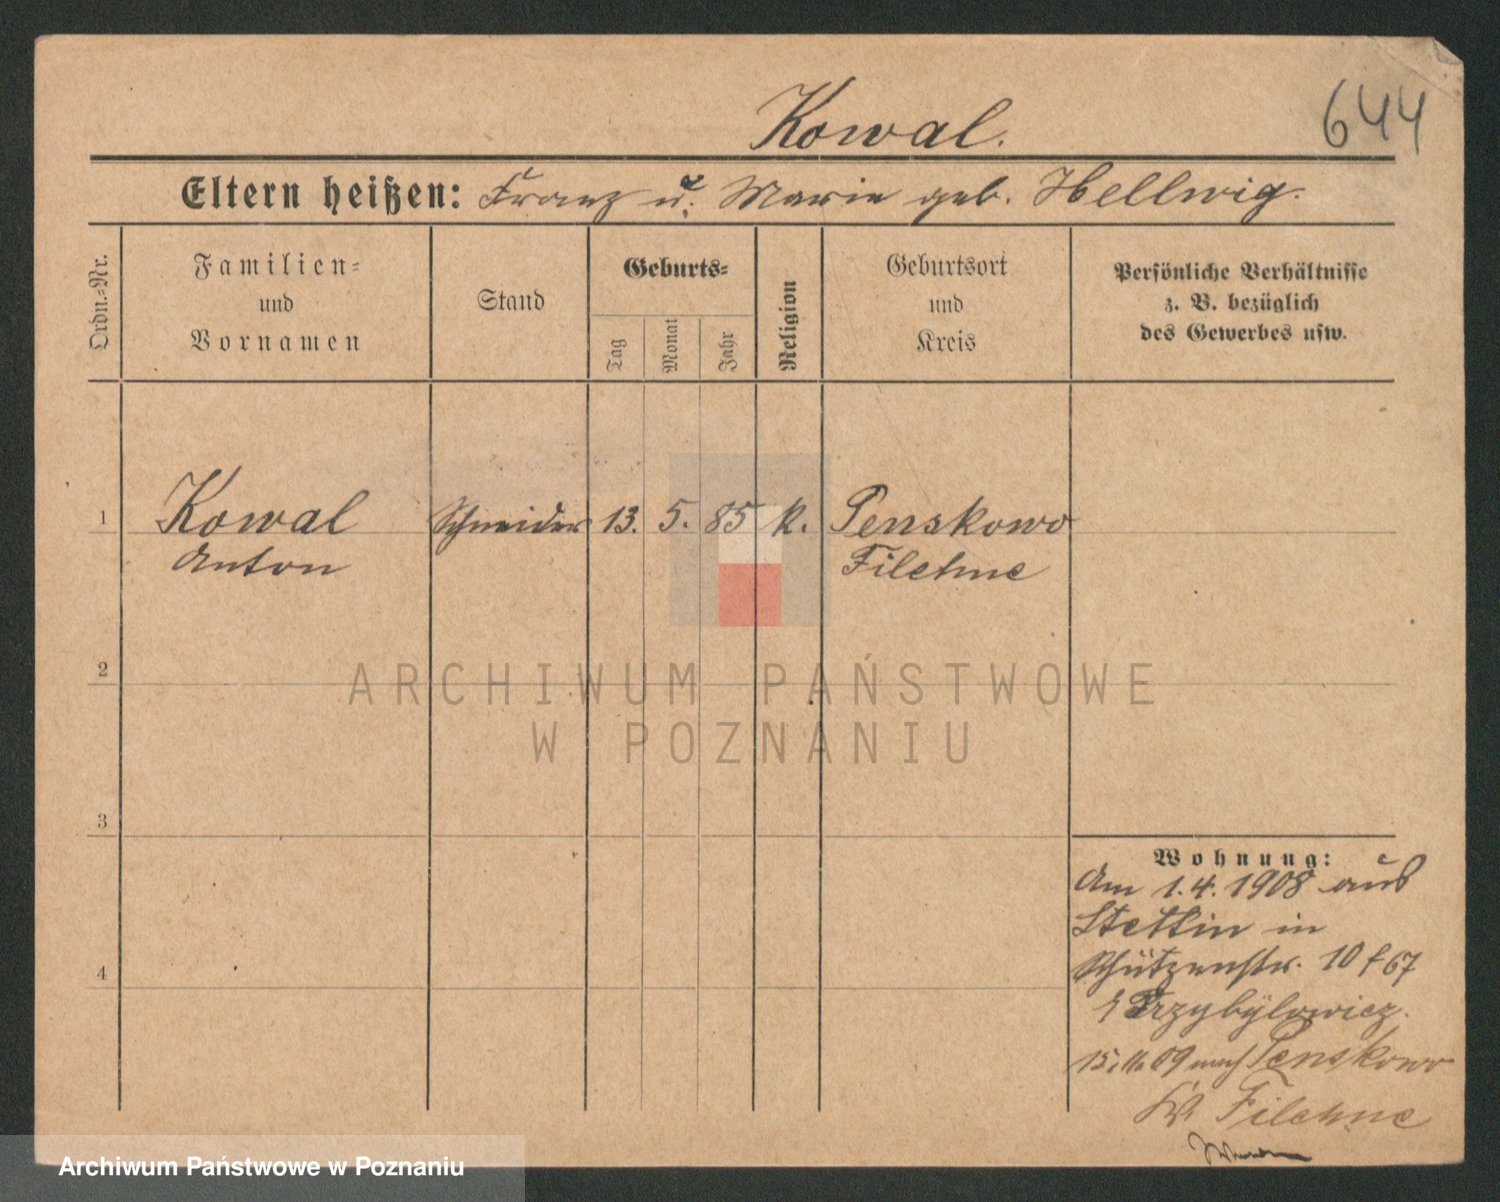 644
Kowal.
Eltern heißen: Franz u. Marie geb. Hellwig.
Ordn.=Nr.
Familien=
und
Vornamen
Stand
Geburts=
Tag
Monat
Jahr
Religion
Geburtsort
und
Kreis
Persönliche Verhältnisse
z. B. bezüglich
des Gewerbes usw.
1 Kowal Schneider 13. 5. 85 k. Penskowo
Anton Filehne
2
3
4
Wohnung:
Am 1.4.1908 aus
Stettin in
Schützenstr. 10 f 67
Przybylowicz.
15.11.09 nach Penskowo
Kr Filehne
ARCHIWUM PAŃSTWOWE
W POZNANIU
Archiwum Państwowe w Poznaniu